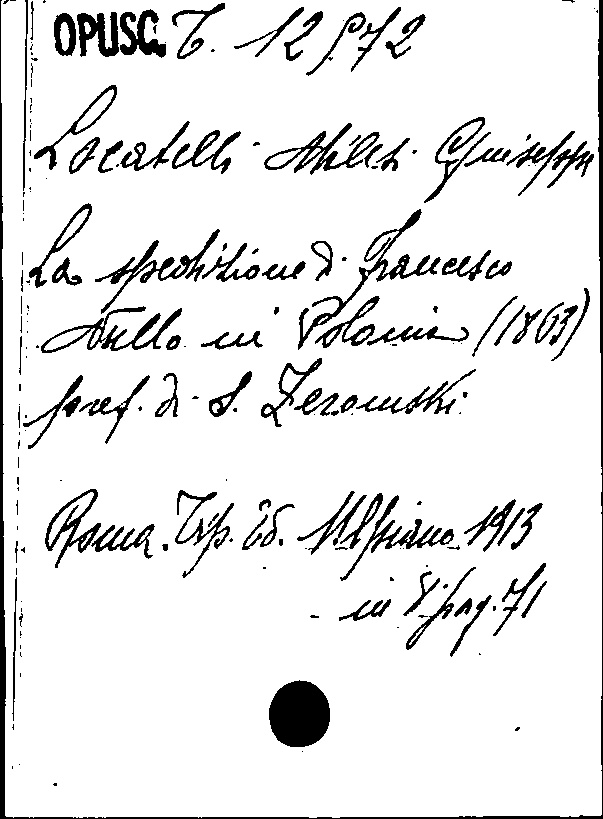 OPUSC. T. 12 572
Locatelli Milesi Giuseppe
La spedizione di Francesco
Nullo in Polonia (1863)
pref. di S. Zeromski
Roma. Tip. Ed. Ulpiano 1913
in 8° pag. 71